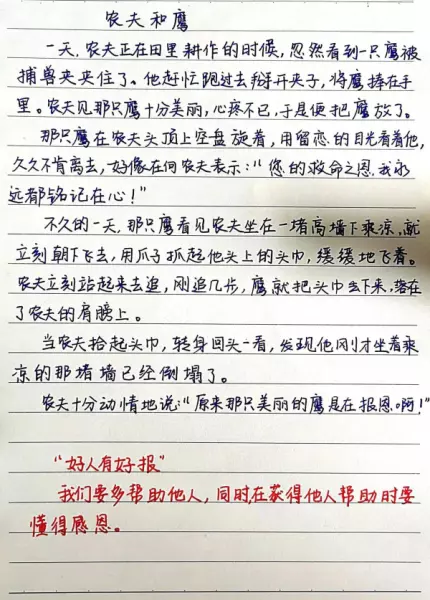 农夫和鹰
一天,农夫正在田里耕作的时候,忽然看到一只鹰被
捕兽夹夹住了。他赶忙跑过去掰开夹子,将鹰捧在手
里。农夫见那只鹰十分美丽,心疼不已,于是便把鹰放了。
那只鹰在农夫头顶上空盘旋着,用留恋的目光看着他,
久久不肯离去,好像在向农夫表示:“您的救命之恩,我永
远都铭记在心!”
不久的一天,那只鹰看见农夫坐在一堵高墙下乘凉,就
立刻朝下飞去,用爪子抓起他头上的头巾,缓缓地飞着。
农夫立刻站起来去追,刚追几步,鹰就把头巾丢下来,落在
了农夫的肩膀上。
当农夫拾起头巾,转身回头一看,发现他刚才坐着乘
凉的那堵墙已经倒塌了。
农夫十分动情地说:“原来那只美丽的鹰是在报恩啊!”
“好人有好报”
我们要多帮助他人,同时,在获得他人帮助时要
懂得感恩。